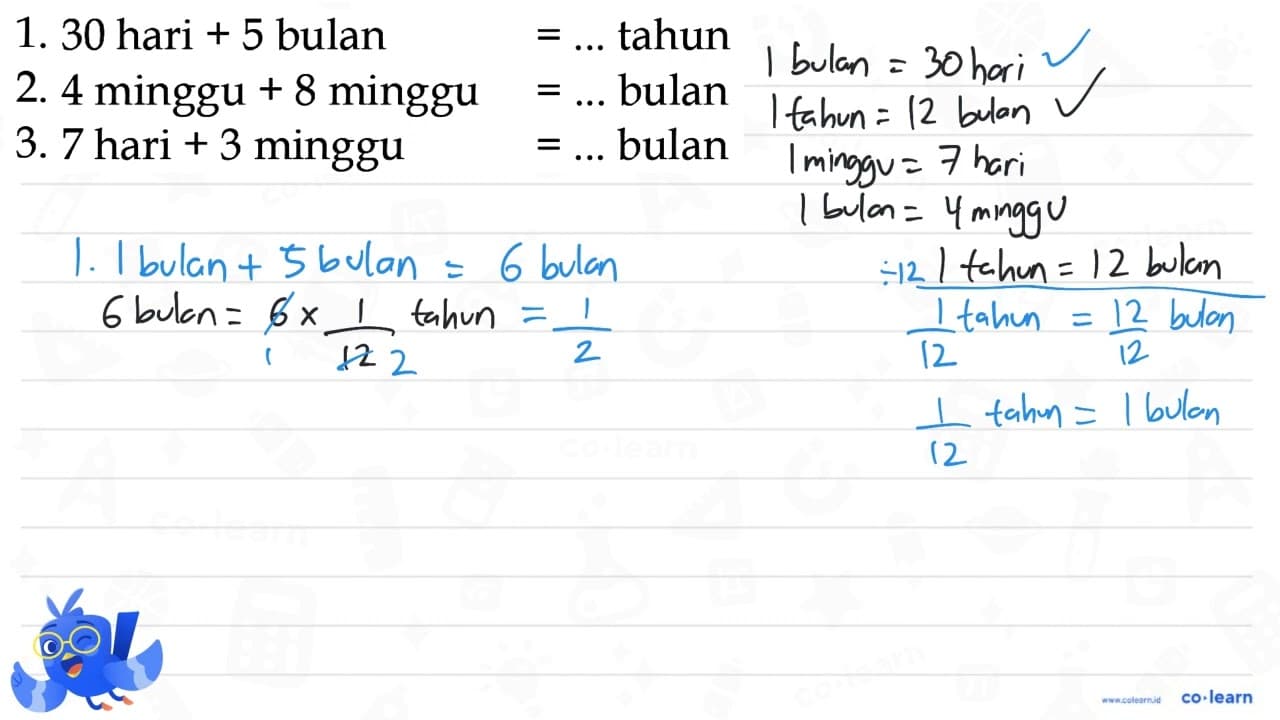 1. 30 hari + 5 bulan = ... tahun
2. 4 minggu + 8 minggu = ... bulan
3. 7 hari + 3 minggu = ... bulan
1 bulan = 30 hari ✓
1 tahun = 12 bulan ✓
1 minggu = 7 hari
1 bulan = 4 minggu
1. 1 bulan + 5 bulan = 6 bulan
6 bulan = 6 x 1/12 tahun = 1/2
1 2
÷12 1 tahun = 12 bulan
1/12 tahun = 12/12 bulan
1/12 tahun = 1 bulan
co·learn
co·learn
www.colearn.id co·learn